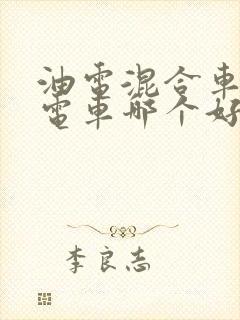 油電混合車
電車哪个好
李良志